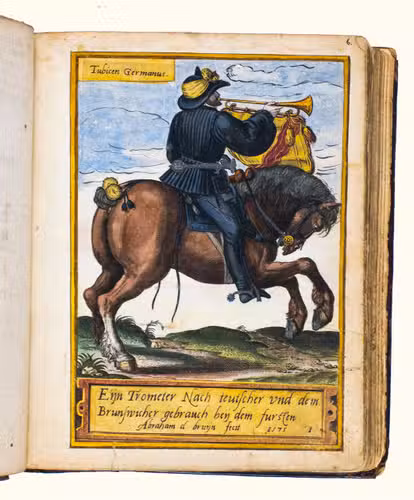 6
Tubicen Germanus.
Eyn Trometer Nach teutscher vnd dem
Brunswicher gebrauch bey dem fursten
Abraham d bruyn fecit 1575 1